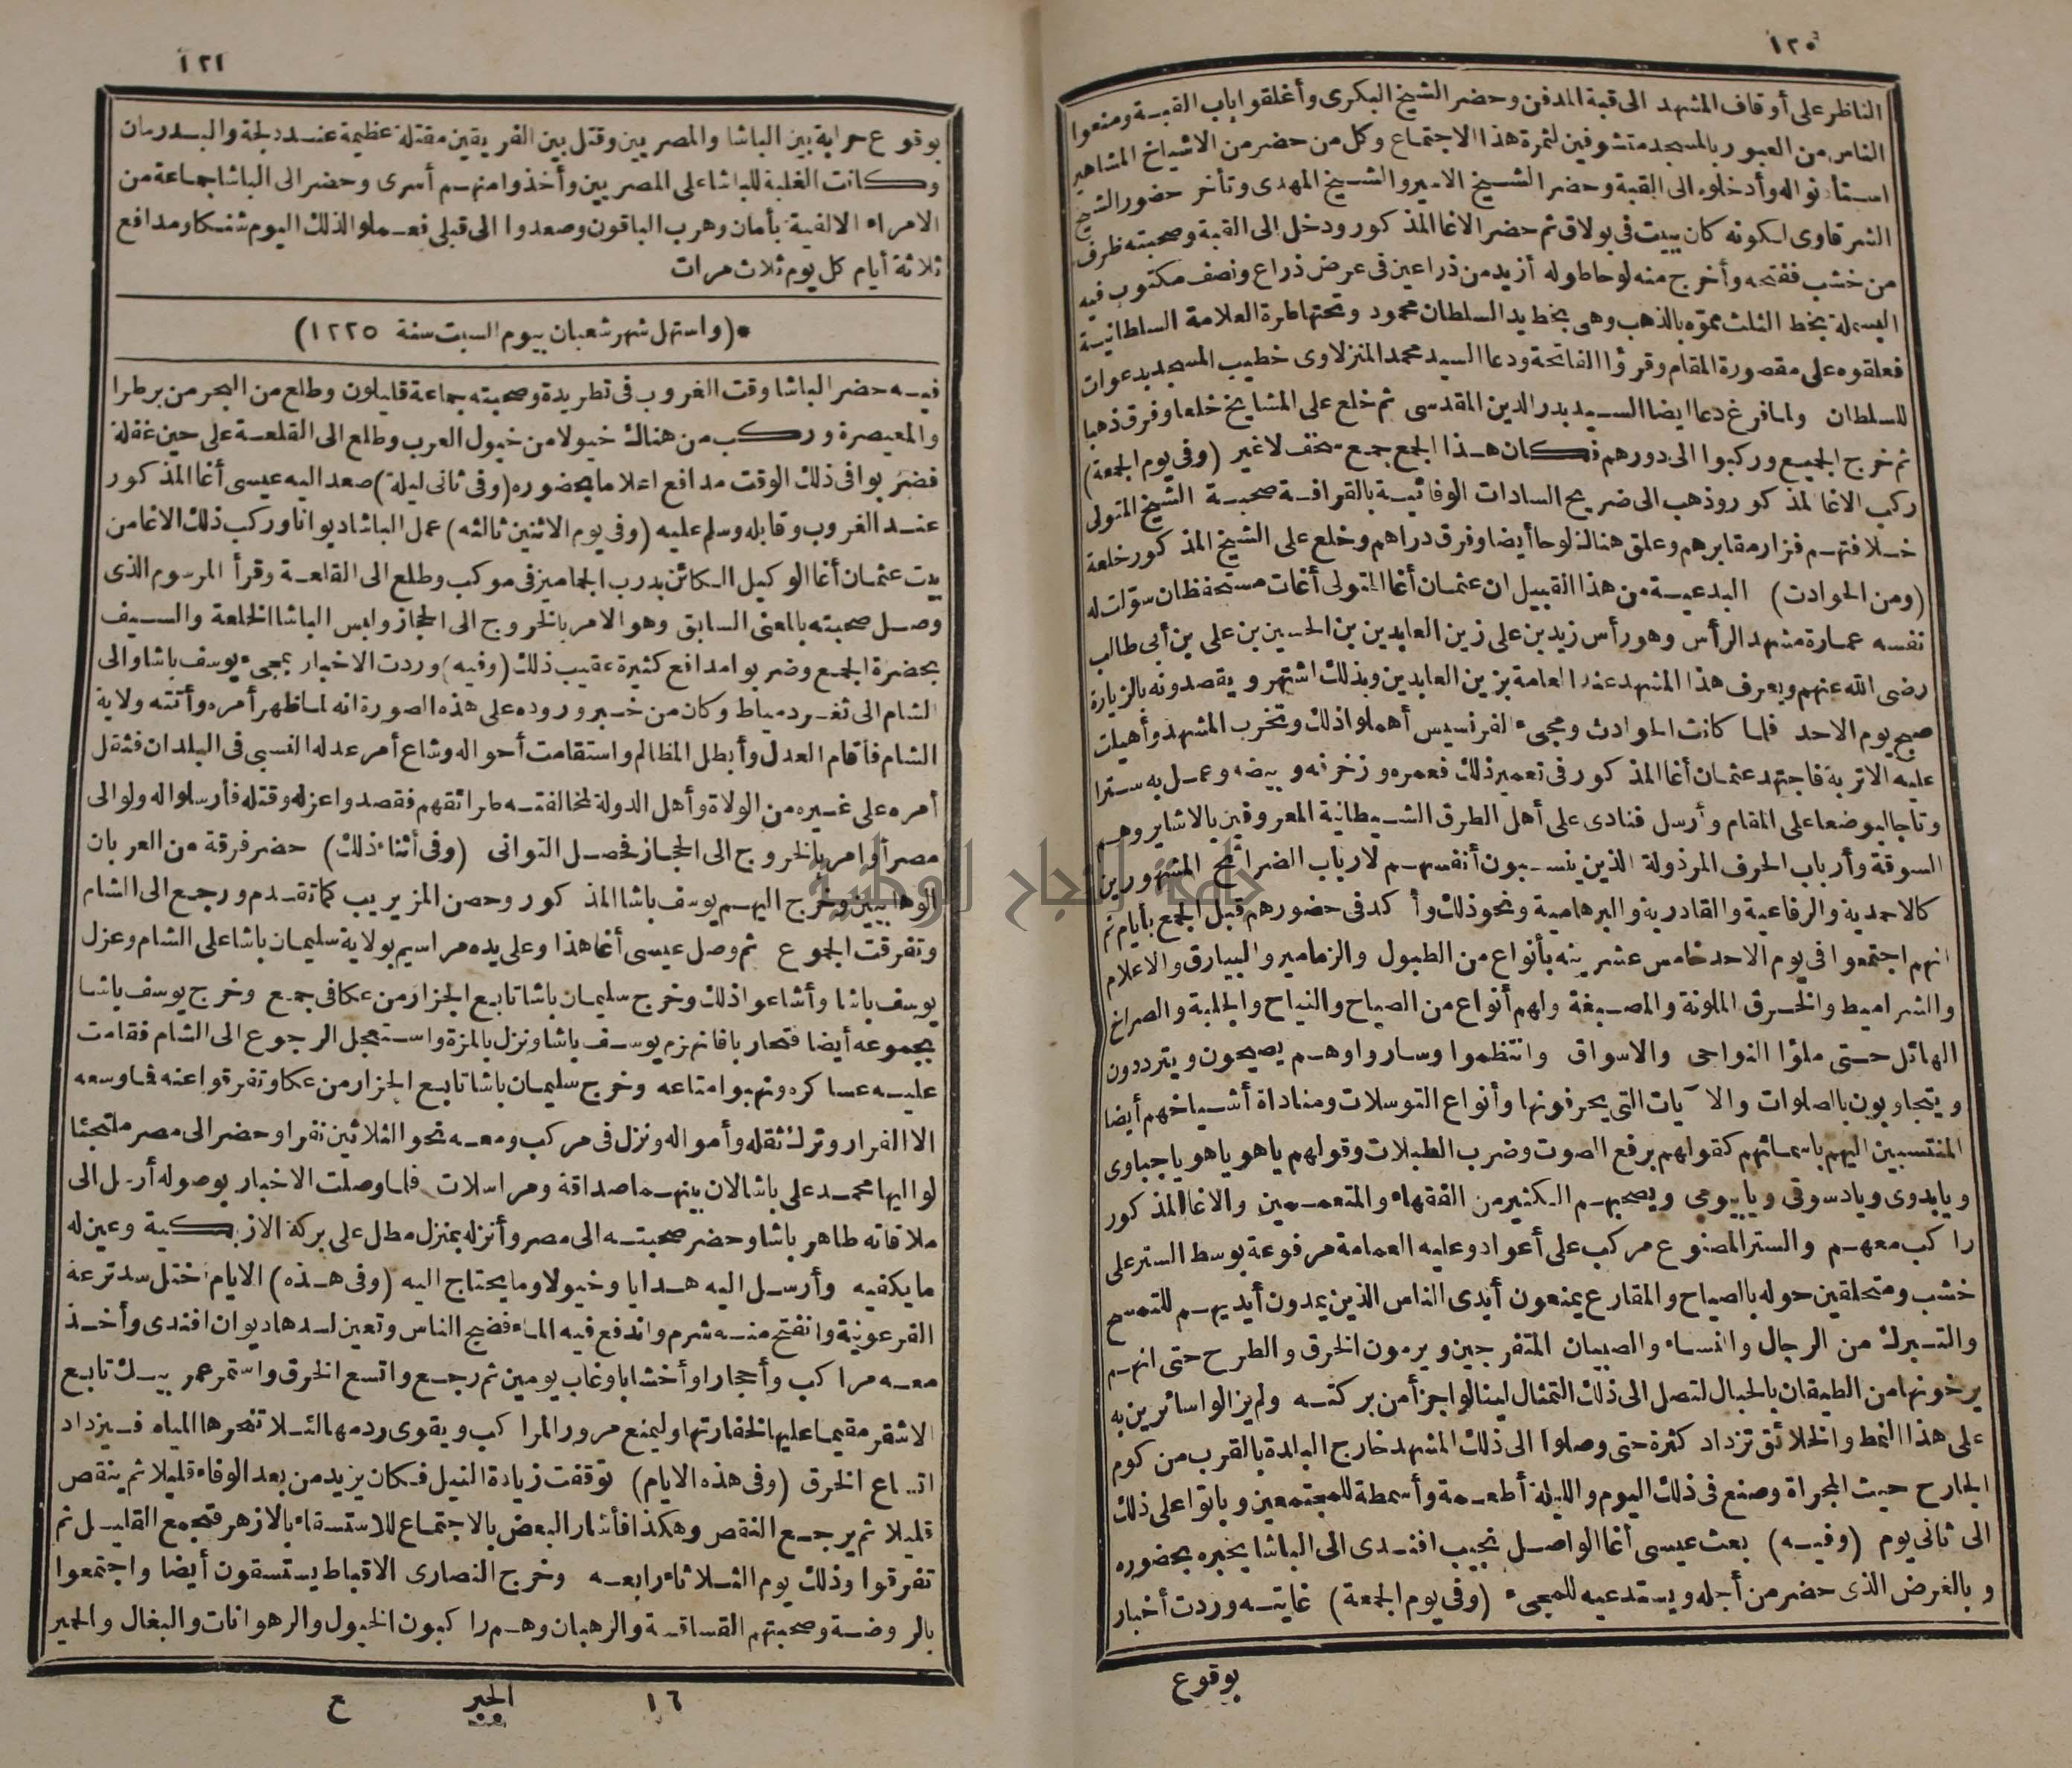 ١٢٠
الناظر على أوقاف المشهد الى قبة المدفن وحضر الشيخ البكرى وأغلقوا باب القبة ومنعوا
الناس من العبور بالمسجد متشوفين لثمرة هذا الاجتماع وكل من حضر من الاشياخ المشاهير
استأذنوا له وأدخلوه الى القبة وحضر الشيخ الامير والشيخ المهدى وتأخر حضور الشيخ
الشرقاوى لكونه كان يبيت فى بولاق ثم حضر الاغا المذكور ودخل الى القبة وصحبته ظرف
من خشب ففتحه وأخرج منه لوحا طوله أزيد من ذراعين فى عرض ذراع ونصف مكتوب فيه
البسملة بخط الثلث مموّه بالذهب وهى بخط يد السلطان محمود وتحتها طرة العلامة السلطانية
فعلقوه على مقصورة المقام وقرؤا الفاتحة ودعا السيد محمد المنزلاوى خطيب المسجد بدعوات
للسلطان ولما فرغ دعا ايضا السيد بدر الدين المقدسى ثم خلع على المشايخ خلعا وفرق ذهبا
ثم خرج الجميع وركبوا الى دورهم فكان هذا الجمع جمع سخف لا غير (وفى يوم الجمعة)
ركب الاغا المذكور وذهب الى ضريح السادات الوفائية بالقرافة صحبة الشيخ المتولى
خلافتهم فزار مقابرهم وعلق هنالك لوحا أيضا وفرق دراهم وخلع على الشيخ المذكور خلعة
(ومن الحوادث) البدعية من هذا القبيل ان عثمان أغا المتولى أغات مستحفظان سوّلت له
نفسه عمارة مشهد الرأس وهو رأس زيد بن على زين العابدين بن الحسين بن على بن أبى طالب
رضى الله عنهم ويعرف هذا المشهد عند العامة بزين العابدين وبذلك اشتهر ويقصدونه بالزيارة
صبح يوم الاحد فلما كانت الحوادث ومجىء الفرنسيس أهملوا ذلك وتخرب المشهد وأهيلت
عليه الاتربة فاجتهد عثمان أغا المذكور فى تعمير ذلك فعمره وزخرفه وبيضه وعمل به سترا
وتاجا ليوضعا على المقام وأرسل فنادى على أهل الطرق الشيطانية المعروفين بالاشاير وهم
السوقة وأرباب الحرف المرذولة الذين ينسبون أنفسهم لارباب الضرائح المشهورين
كالاحمدية والرفاعية والقادرية والبرهامية ونحو ذلك وأكد فى حضورهم قبل الجمع بأيام ثم
انهم اجتمعوا فى يوم الاحد خامس عشرينه بأنواع من الطبول والزمامير والبيارق والاعلام
والشراميط والخرق الملونة والمصبغة ولهم أنواع من الصياح والنياح والجلبة والصراخ
الهائل حتى ملؤا النواحى والاسواق وانتظموا وساروا وهم يصيحون ويترددون
ويتجاوبون بالصلوات والآيات التى يحرفونها وأنواع التوسلات ومناداة أشياخهم أيضا
المنتسبين اليهم باسمائهم كقولهم برفع الصوت وضرب الطبلات وقولهم ياهو ياهو يا جباوى
ويا بدوى ويا دسوقى ويا بيومى ويصحبهم الكثير من الفقهاء والمتعممين والاغا المذكور
راكب معهم والستر المصنوع مركب على أعواد وعليه العمامة مرفوعة بوسط الستر على
خشب ومتحلقين حوله بالصياح والمقارع يمنعون أيدى الناس الذين يمدون أيديهم للتمسح
والتبرك من الرجال والنساء والصبيان المتفرجين ويرمون الخرق والطرح حتى انهم
يرخونها من الطيقان بالحبال لتصل الى ذلك التمثال لينالوا جزأ من بركته ولم يزالوا سائرين به
على هذا النمط والخلائق تزداد كثرة حتى وصلوا الى ذلك المشهد خارج البلدة بالقرب من كوم
الجارح حيث المجراة وصنع فى ذلك اليوم والليلة أطعمة وأسمطة للمجتمعين وباتوا على ذلك
الى ثانى يوم (وفيه) بعث عيسى أغا الواصل نجيب افندى الى الباشا يخبره بحضوره
وبالغرض الذى حضر من أجله ويستدعيه للمجىء (وفى يوم الجمعة) غايته وردت أخبار
بوقوع
١٢١
بوقوع حرابة بين الباشا والمصريين وقتل بين الفريقين مقتلة عظيمة عند دلجة والبدرمان
وكانت الغلبة للباشا على المصريين وأخذوا منهم أسرى وحضر الى الباشا جماعة من
الامراء الالفية بأمان وهرب الباقون وصعدوا الى قبلى فعملوا لذلك اليوم شنكا ومدافع
ثلاثة أيام كل يوم ثلاث مرات
*(واستهل شهر شعبان بيوم السبت سنة ١٢٢٥)
فيه حضر الباشا وقت الغروب فى تطريدة وصحبته جماعة قليلون وطلع من البحر من بر طرا
والمعيصرة وركب من هناك خيولا من خيول العرب وطلع الى القلعة على حين غفلة
فضربوا فى ذلك الوقت مدافع اعلاما بحضوره (وفى ثانى ليلة) صعد اليه عيسى أغا المذكور
عند الغروب وقابله وسلم عليه (وفى يوم الاثنين ثالثه) عمل الباشا ديوانا وركب ذلك الاغا من
بيت عثمان أغا الوكيل الكائن بدرب الجماميز فى موكب وطلع الى القلعة وقرأ المرسوم الذى
وصل صحبته بالمعنى السابق وهو الامر بالخروج الى الحجاز ولبس الباشا الخلعة والسيف
بحضرة الجمع وضربوا مدافع كثيرة عقيب ذلك (وفيه) وردت الاخبار بمجىء يوسف باشا والى
الشام الى ثغر دمياط وكان من خبر وروده على هذه الصورة انه لما ظهر أمره وأتته ولاية
الشام فأقام العدل وأبطل المظالم واستقامت أحواله وشاع أمر عدله النسبى فى البلدان فثقل
أمره على غيره من الولاة وأهل الدولة لمخالفته طرائقهم فقصدوا عزله وقتله فأرسلوا له ولوالى
مصر أوامر بالخروج الى الحجاز فحصل التوانى (وفى أثناء ذلك) حضر فرقة من العربان
الوهابيين وخرج اليهم يوسف باشا المذكور وحصن المزيريب كما تقدم ورجع الى الشام
وتفرقت الجموع ثم وصل عيسى أغا هذا وعلى يده مراسيم بولاية سليمان باشا على الشام وعزل
يوسف باشا وأشاعوا ذلك وخرج سليمان باشا تابع الجزار من عكا فى جمع وخرج يوسف باشا
بجموعه أيضا فتحاربا فانهزم يوسف باشا ونزل بالمزة واستعجل الرجوع الى الشام فقامت
عليه عساكره ونهبوا متاعه وخرج سليمان باشا تابع الجزار من عكا وتفرقوا عنه فما وسعه
الا الفرار وترك ثقله وأمواله ونزل فى مركب ومعه نحو الثلاثين نفرا وحضر الى مصر ملتجئا
لواليها محمد على باشا لان بينهما صداقة ومراسلات فلما وصلت الاخبار بوصوله أرسل الى
ملاقاته طاهر باشا وحضر صحبته الى مصر وأنزله بمنزل مطل على بركة الازبكية وعين له
ما يكفيه وأرسل اليه هدايا وخيولا وما يحتاج اليه (وفى هذه) الايام اختل سد ترعة
الفرعونية وانفتح منه شرم واندفع فيه الماء فضج الناس وتعين لسدها ديوان افندى وأخذ
معه مراكب وأحجارا وأخشابا وغاب يومين ثم رجع واتسع الخرق واستمر عمر بيك تابع
الاشقر مقيما عليها لخفارتها وليمنع مرور المراكب ويقوى ردمها لئلا تنحرها المياه فيزداد
اتساع الخرق (وفى هذه الايام) توقفت زيادة النيل فكان يزيد من بعد الوفاء قليلا ثم ينقص
قليلا ثم يرجع النقص وهكذا فأشار البعض بالاجتماع للاستسقاء بالازهر فتجمع القليل ثم
تفرقوا وذلك يوم الثلاثاء رابعه وخرج النصارى الاقباط يستسقون أيضا واجتمعوا
بالروضة وصحبتهم القساقسة والرهبان وهم راكبون الخيول والرهوانات والبغال والحمير
١٦ الجبر ع
جامعة النجاح الوطنية